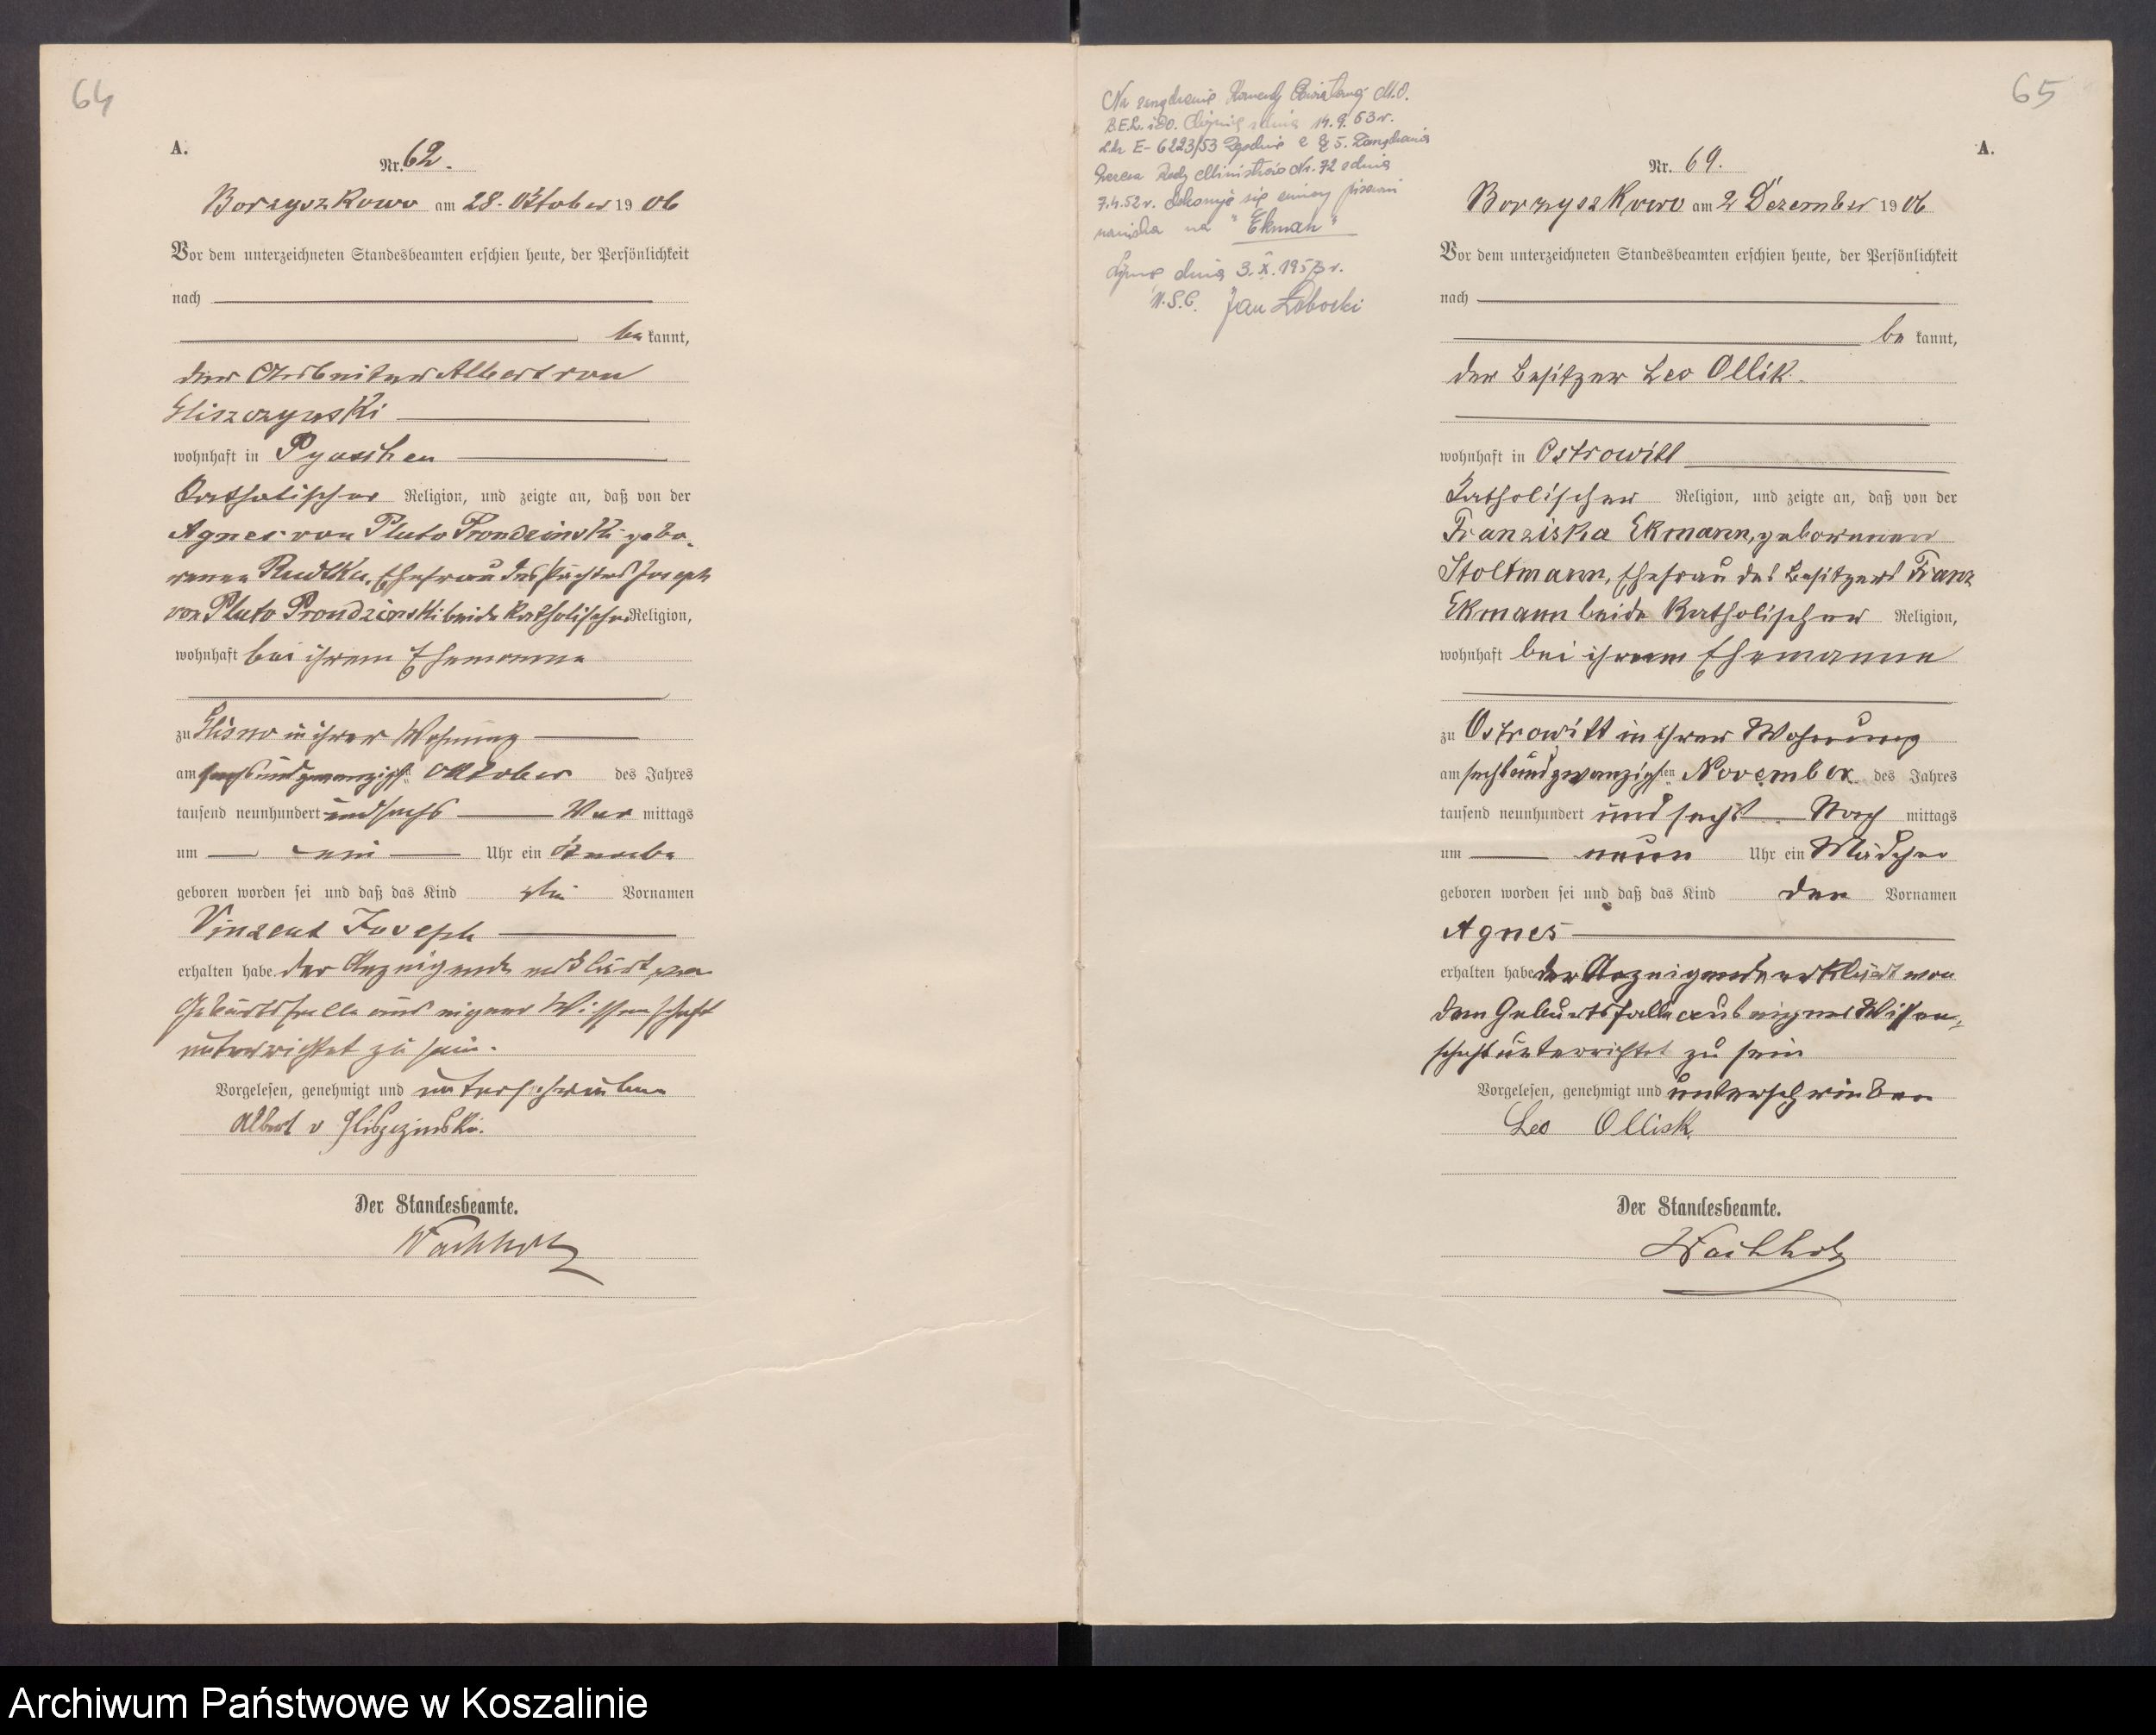 64
A.
Nr. 62.
Borzyszkowo am 28. Oktober 19 06
Vor dem unterzeichneten Standesbeamten erschien heute, der Persönlichkeit
nach
be kannt,
der Arbeiter Albert von
Gliszczynski
wohnhaft in
Katholischer Religion, und zeigte an, daß von der
Agnes von Pluto Prondzinski gebo-
renen Rudtke, Ehefrau des Joseph
von Pluto Prondzinski beide katholischer Religion,
wohnhaft bei ihrem Ehemanne
zu Glisno in ihrer Wohnung
am sechsundzwanzigsten Oktober des Jahres
tausend neunhundert und sechs Vor mittags
um Uhr ein Knabe
geboren worden sei und daß das Kind die Vornamen
Vinzent Joseph
erhalten habe. der Anzeigende erklärt, von
Geburtsfalle aus eigener Wissenschaft
unterrichtet zu sein.
Vorgelesen, genehmigt und unterschrieben
Albert v Gliszczinski.
Der Standesbeamte.
Wachholz
65
Na Komendy Powiatowej M.O.
14.9.53 r.
E-6223/53 Zgodnie z § 5.
Rady Ministrów Nr. 72 z dnia
7.4.52 r. dokonuje się zmiany pisowni
nazwiska na "Ekman"
dnia 3.X.1953 r.
U.S.C. Jan
A.
Nr. 69.
Borzyszkowo am 2 Dezember 19 06
Vor dem unterzeichneten Standesbeamten erschien heute, der Persönlichkeit
nach
be kannt,
der Besitzer Leo Ollik.
wohnhaft in Ostrowitt
Katholischer Religion, und zeigte an, daß von der
Franziska Ekmann, geborenen
Stoltmann, Ehefrau des Besitzers Franz
Ekmann beide Katholischer Religion,
wohnhaft bei ihrem Ehemanne
zu Ostrowitt in ihrer Wohnung
am sechsundzwanzigsten November des Jahres
tausend neunhundert und sechs Nach mittags
um neun Uhr ein Mädchen
geboren worden sei und daß das Kind den Vornamen
Agnes
erhalten habe der Anzeigende erklärt von
dem Geburtsfalle aus eigner Wissen-
schaft unterrichtet zu sein
Vorgelesen, genehmigt und unterschrieben
Leo Ollik.
Der Standesbeamte.
Wachholz
Archiwum Państwowe w Koszalinie